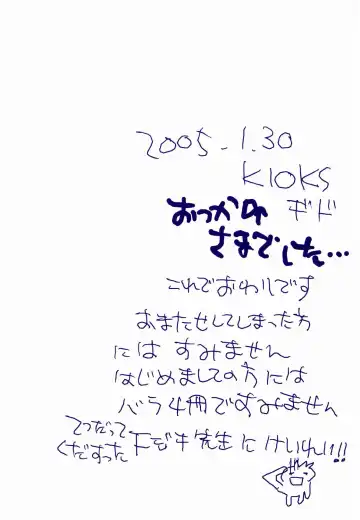 2005.1.30
KIOKS
おっかれ ギド
さまでした…
これでおわりです
おまたせしてしまった方
には すみません
はじめましての方には
バラ4冊ですみません
てつだって
くだすった 下ジキ先生に けいれい!!